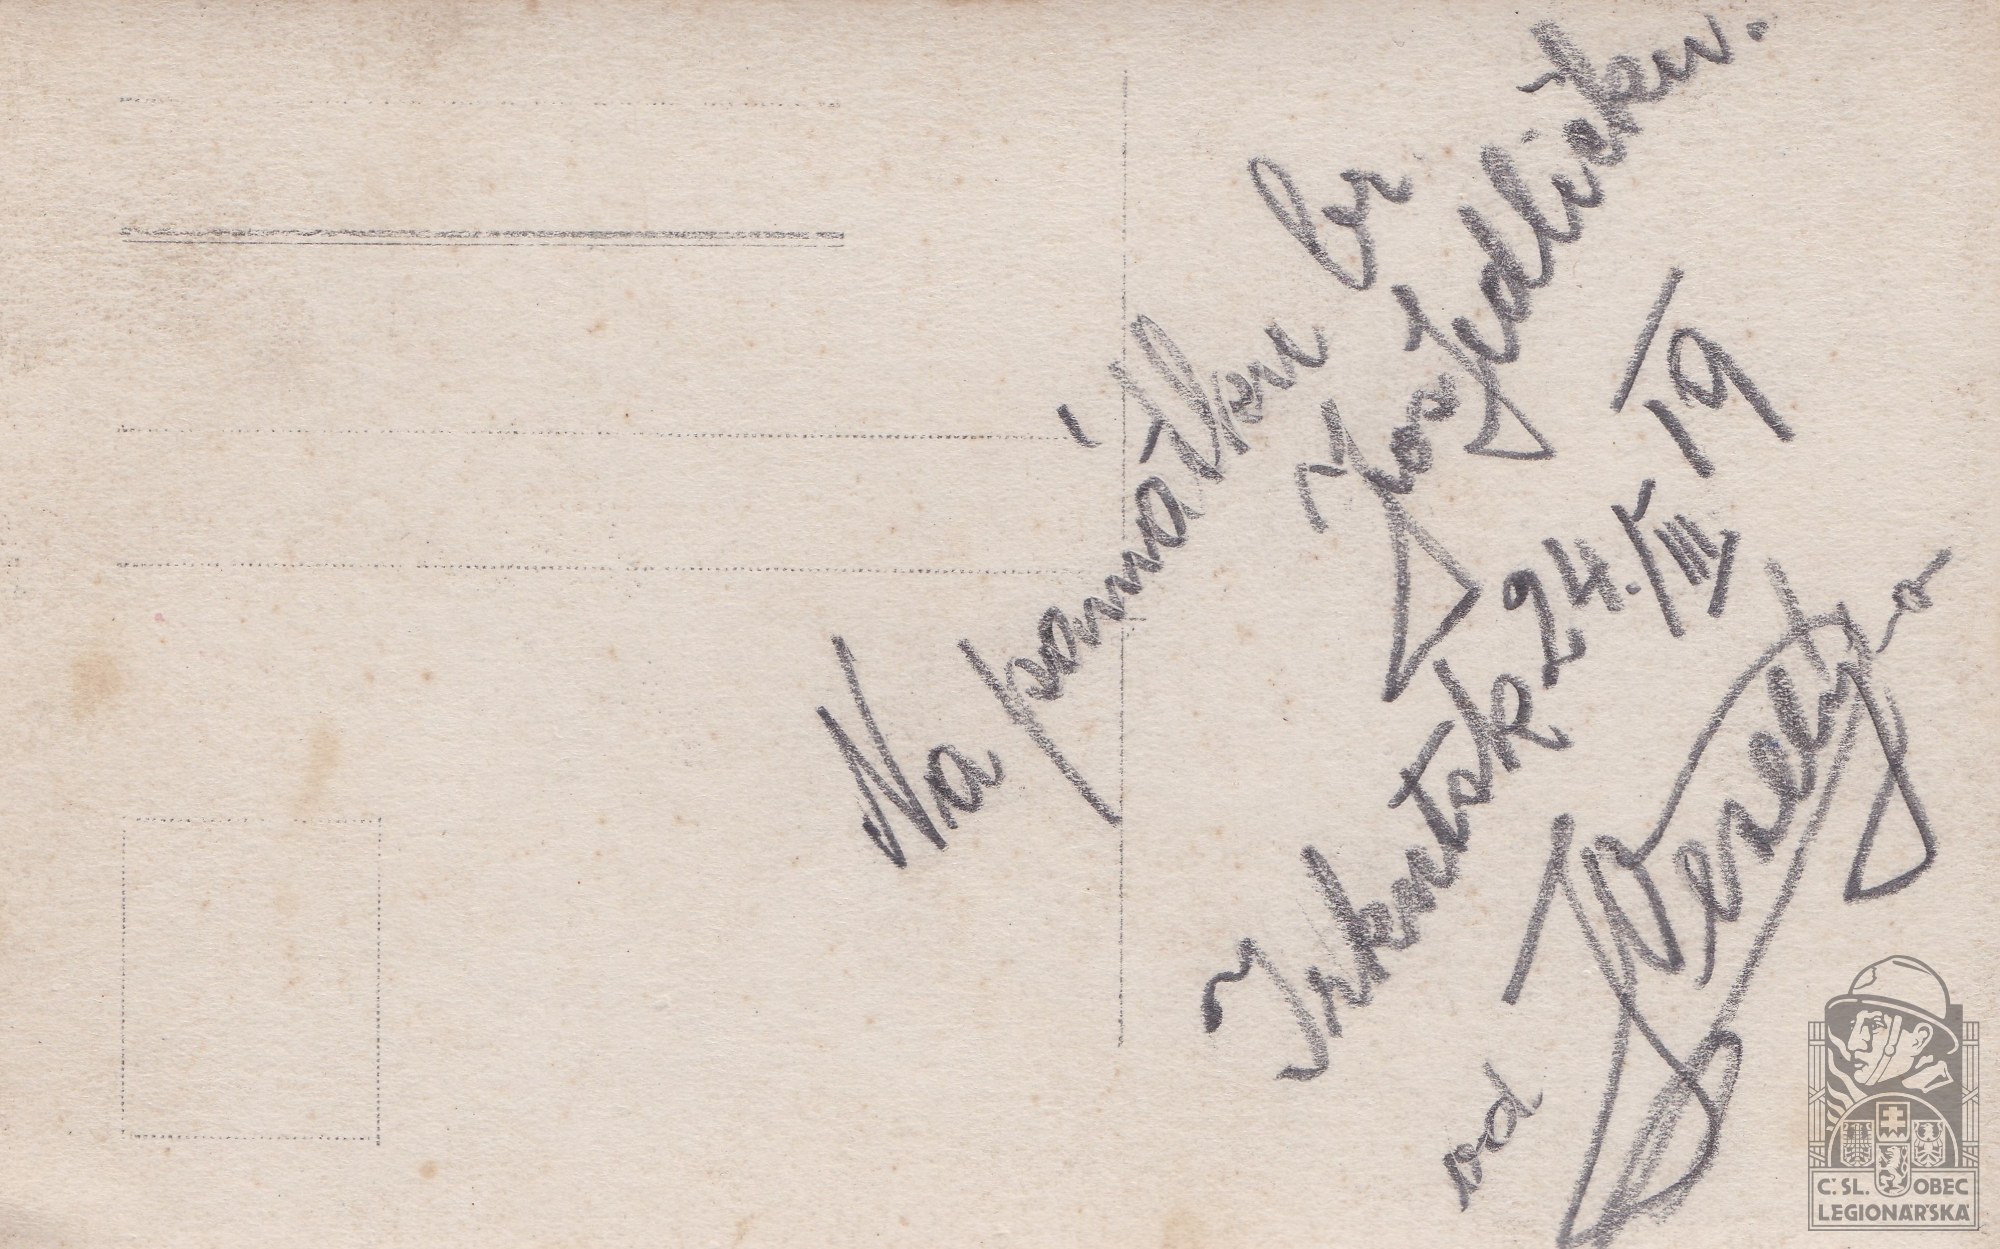 Na památku br
Jos Jedličkw.
Irkutsk 24./VIII/19
od Veselýa
Č. SL. OBEC
LEGIONÁŘSKÁ